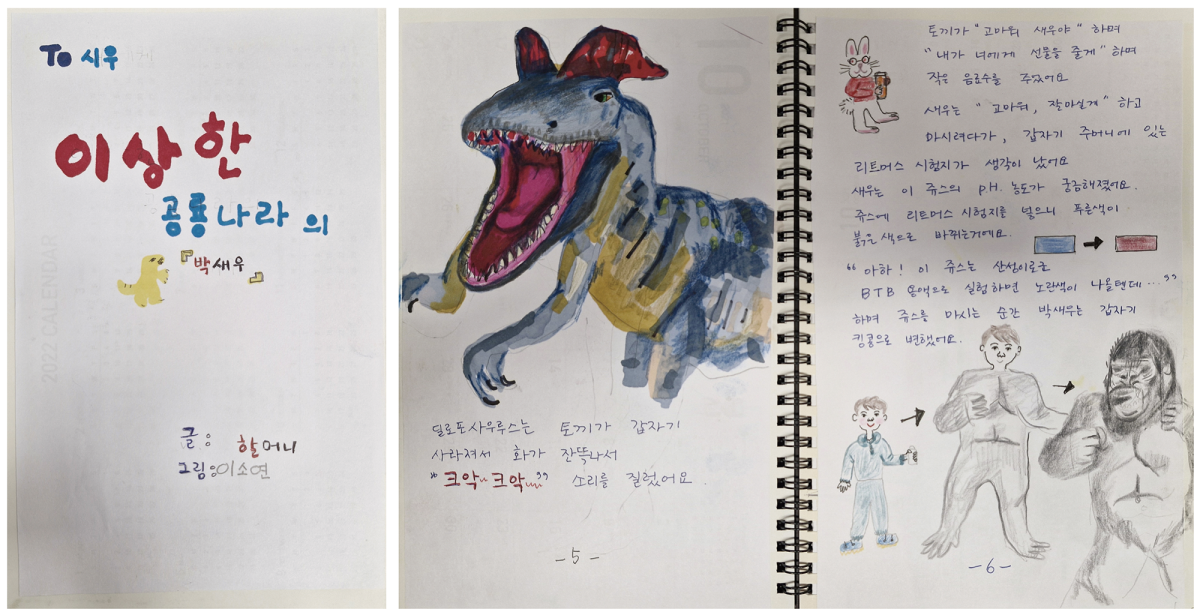 To 시우
이상한
공룡나라의
『박새우』
글: 할머니
그림: 이소연
2022 CALENDAR
딜로포사우루스는 토끼가 갑자기
사라져서 화가 잔뜩나서
"크악~ 크악~" 소리를 질렀어요
-5-
토끼가 "고마워 새우야" 하며
"내가 너에게 선물을 줄게" 하며
작은 음료수를 주었어요
새우는 "고마워, 잘마실게" 하고
마시려다가, 갑자기 주머니에 있는
리트머스 시험지가 생각이 났어요
새우는 이 쥬스의 pH. 농도가 궁금해졌어요.
쥬스에 리트머스 시험지를 넣으니 푸른색이
붉은색으로 바뀌는거에요.
"아하! 이 쥬스는 산성이로군
BTB 용액으로 실험하면 노란색이 나올텐데..."
하며 쥬스를 마시는 순간 박새우는 갑자기
킹콩으로 변했어요.
-6-